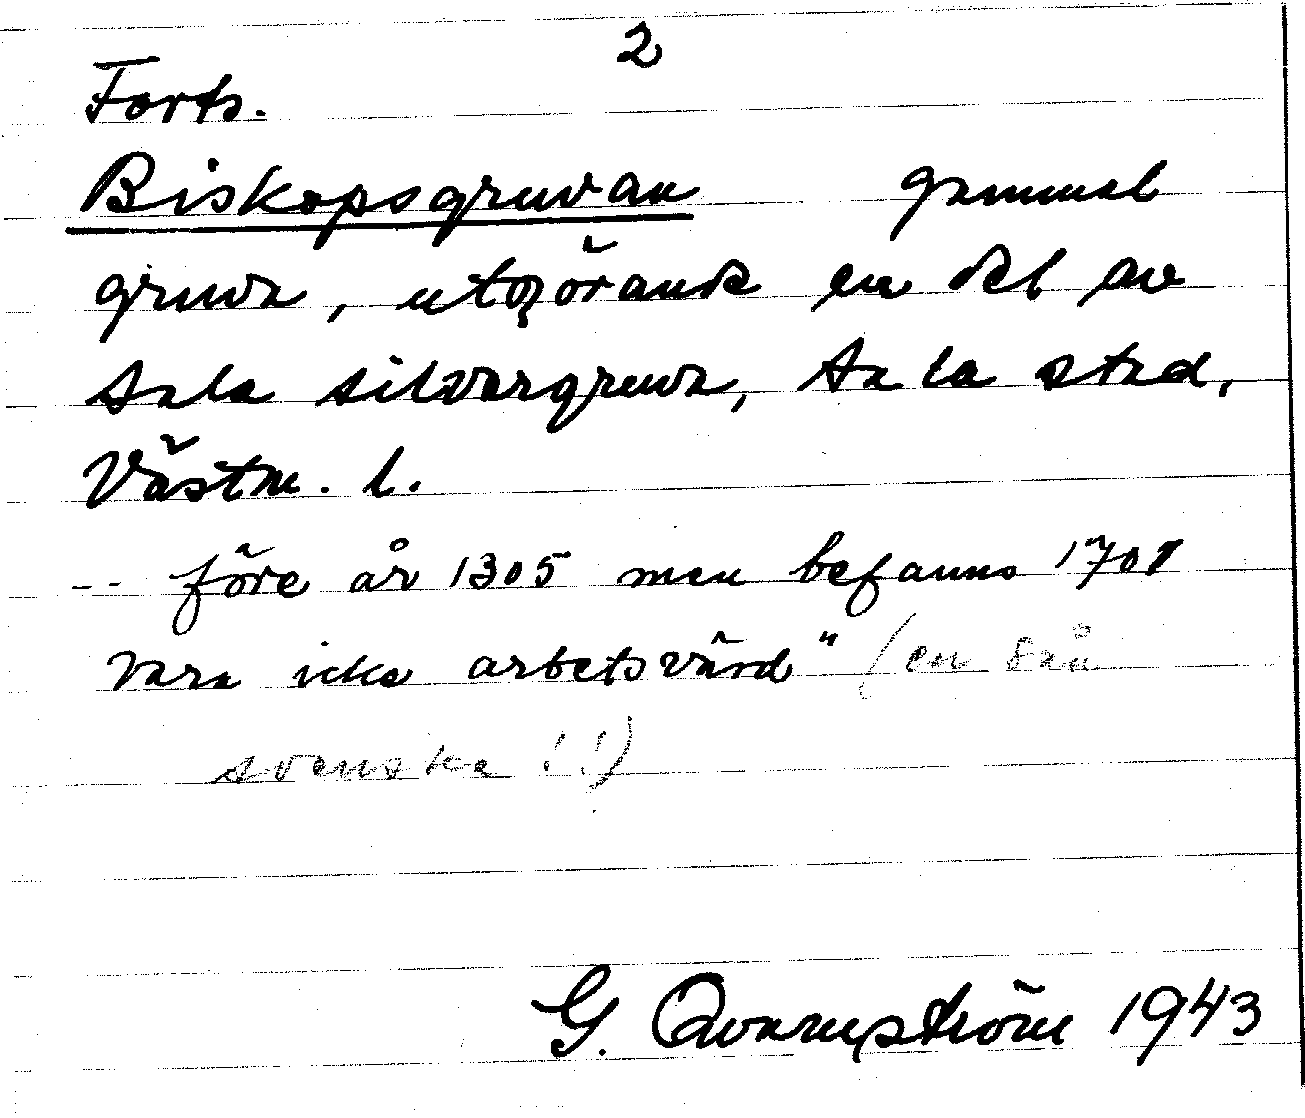 2
Forts.
Biskopsgruvan gammal
gruva, utgörande en del av
Sala silvergruva, Sala stad,
Västm. l.
-- före år 1305 men befanns 1701
vara icke arbetsvärd" (en
svenska !!)
G. Qvarnström 1943